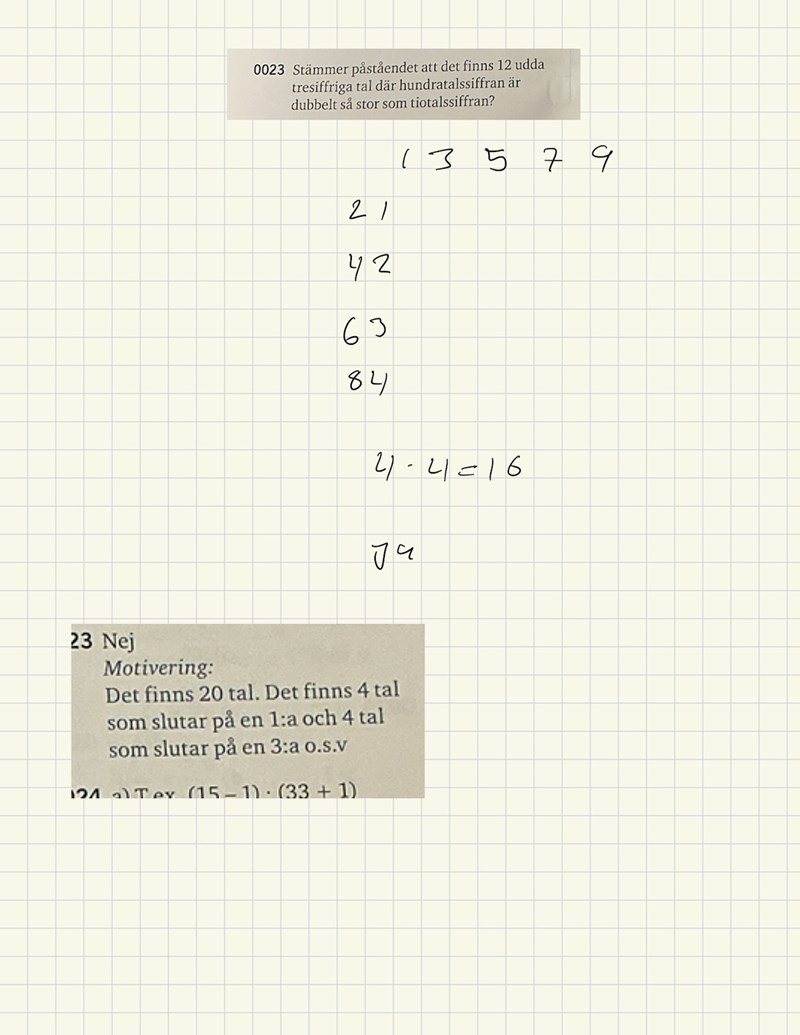 0023 Stämmer påståendet att det finns 12 udda
tresiffriga tal där hundratalssiffran är
dubbelt så stor som tiotalssiffran?
1 3 5 7 9
2 1
4 2
6 3
8 4
4 · 4 = 16
Ja
23 Nej
Motivering:
Det finns 20 tal. Det finns 4 tal
som slutar på en 1:a och 4 tal
som slutar på en 3:a o.s.v
24 a) T ex (15 – 1) · (33 + 1)